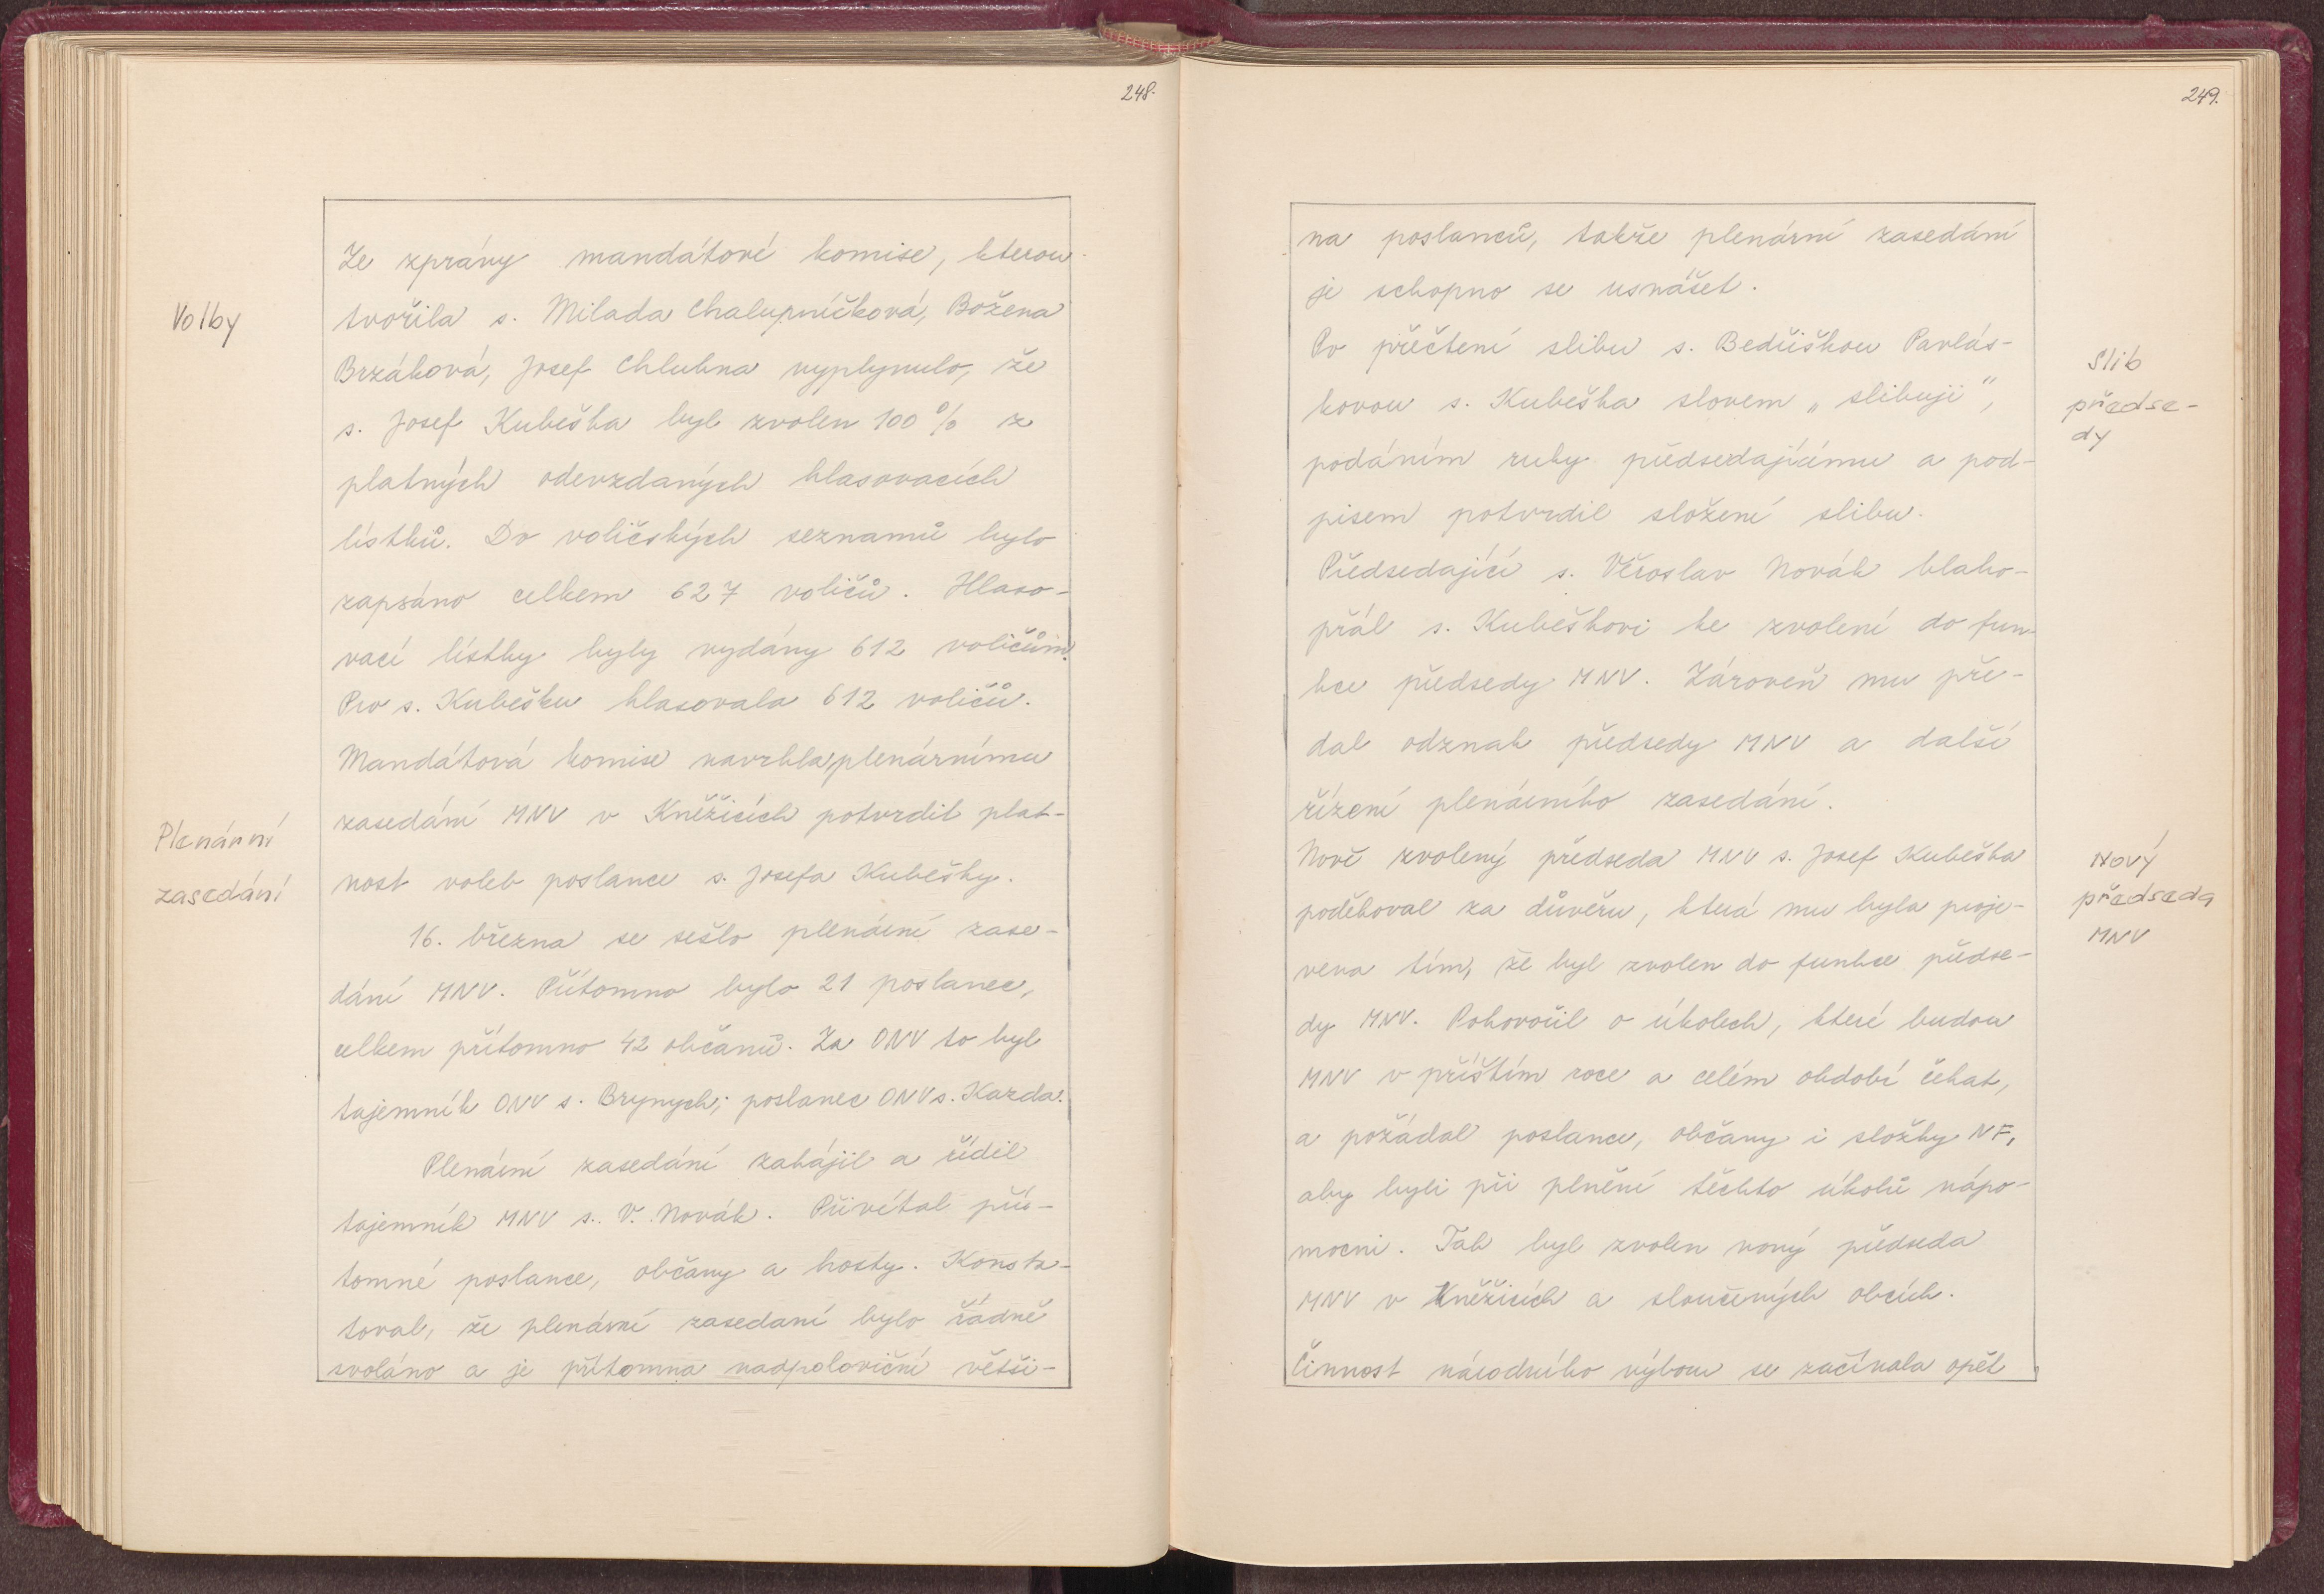 248.
Volby
Ze zprávy mandátové komise, kterou
tvořila s. Milada Chalupníčková, Božena
Brzáková, Josef Chlubna vyplynulo, že
s. Josef Kubeška byl zvolen 100% z
platných odevzdaných hlasovacích
lístků. Do voličských seznamů bylo
zapsáno celkem 627 voličů. Hlaso-
vací lístky byly vydány 612 voličům.
Pro s. Kubešku hlasovala 612 voličů.
Mandátová komise navrhla plenárnímu
zasedání MNV v Kněžicích potvrdit plat-
nost voleb poslance s. Josefa Kubešky.
Plenární
zasedání
16. března se sešlo plenární zase-
dání MNV. Přítomno bylo 21 poslanec,
celkem přítomno 42 občanů. Za ONV to byl
tajemník ONV s. Brynych; poslanec ONV s. Kazda.
Plenární zasedání zahájil a řídil
tajemník MNV s. V. Novák. Přivítal pří-
tomné poslance, občany a hosty. Konsta-
toval, že plenární zasedaní bylo řádně
svoláno a je přítomna nadpoloviční větši-
249.
na poslanců, takže plenární zasedání
je schopno se usnášet.
Po přečtení slibu s. Bedřiškou Pavlás-
kovou s. Kubeška slovem „slibuji",
podáním ruky předsedajícímu a pod-
pisem potvrdil složení slibu.
Slib
předse-
dy
Předsedající s. Věroslav Novák blaho-
přál s. Kubeškovi ke zvolení do fun-
kce předsedy MNV. Zároveň mu pře-
dal odznak předsedy MNV a další
řízení plenárního zasedání.
Nově zvolený předseda MNV s. Josef Kubeška
poděkoval za důvěru, která mu byla proje-
vena tím, že byl zvolen do funkce předse-
dy MNV. Pohovořil o úkolech, které budou
MNV v příštím roce a celém období čekat,
a požádal poslance, občany i složky NF,
aby byli při plnění těchto úkolů nápo-
mocni. Tak byl zvolen nový předseda
MNV v Kněžicích a sloučených obcích.
Činnost národního výboru se začínala opět
Nový
předseda
MNV